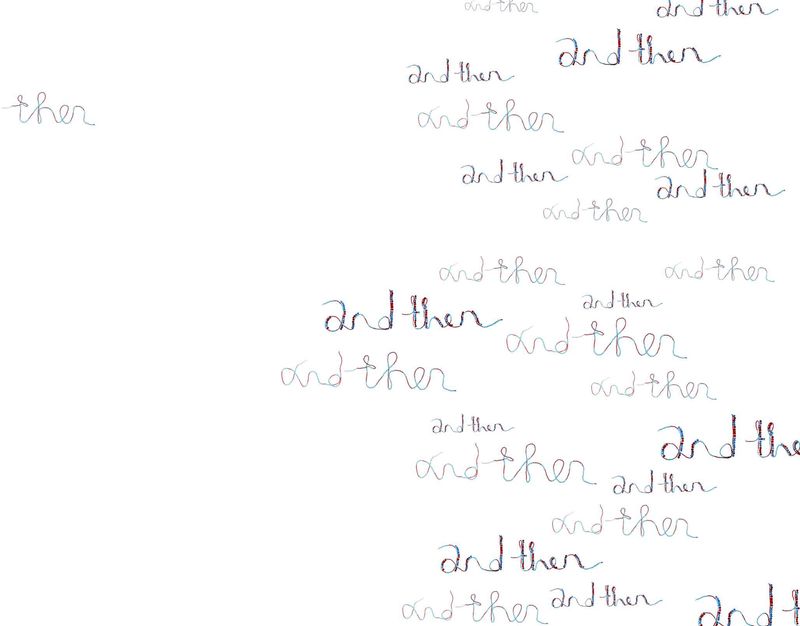 and then
and then
and then
and then
then
and then
and then
and then
and then
and then
and then
and then
and then
and then
and then
and then
and then
and then
and the
and then
and then
and then
and then
and then
and then
and t